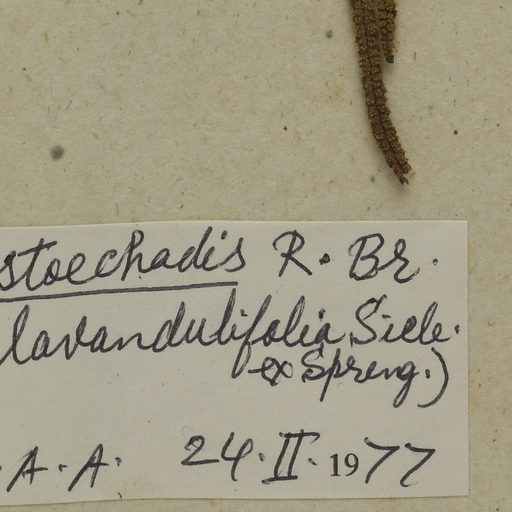 stoechadis R. Br.
lavandulifolia Sieb.
ex Spreng.)
. A. A. 24. II. 1977